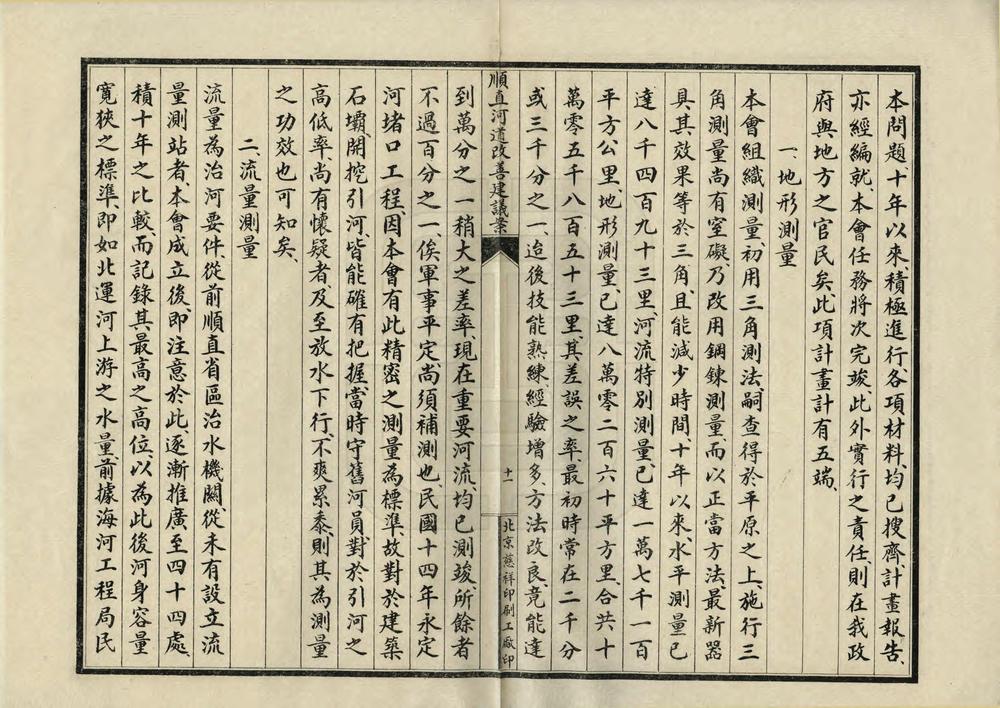 本問題十年以來積極進行、各項材料、均已搜齊、計畫報告、
亦經編就、本會任務將次完竣、此外實行之責任、則在我政
府與地方之官民矣、此項計畫計有五端、
一、地形測量
本會組織測量、初用三角測法、嗣查得於平原之上、施行三
角測量尚有窒礙、乃改用鋼鍊測量、而以正當方法、最新器
具、其效果等於三角、且能減少時間、十年以來、水平測量已
達八千四百九十三里、河流特別測量、已達一萬七千一百
平方公里、地形測量、已達八萬零二百六十平方里、合共十
萬零五千八百五十三里、其差誤之率、最初時常在二千分
或三千分之一、迨後技能熟練、經驗增多、方法改良、竟能達
順直河道改善建議案
十一
北京慈祥印刷工廠印
到萬分之一稍大之差率、現在重要河流、均已測竣、所餘者
不過百分之一、俟軍事平定、尚須補測也、民國十四年永定
河堵口工程、因本會有此精密之測量為標準、故對於建築
石壩、開挖引河、皆能確有把握、當時守舊河員、對於引河之
高低率、尚有懷疑者、及至放水下行、不爽累黍、則其為測量
之功效也可知矣、
二、流量測量
流量為治河要件、從前順直省區治水機關、從未有設立流
量測站者、本會成立後、即注意於此、逐漸推廣、至四十四處、
積十年之比較、而記錄其最高之高位、以為此後河身容量
寬狹之標準、即如北運河上游之水量、前據海河工程局民